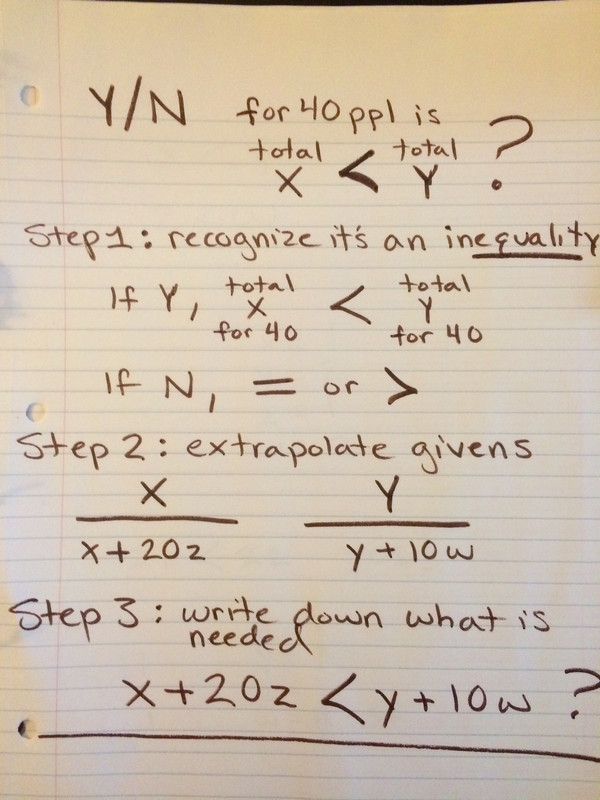 Y/N for 40 ppl is
total X < total Y ?
Step 1: recognize it's an inequality
If Y, total X for 40 < total Y for 40
If N, = or >
Step 2: extrapolate givens
X Y
x + 20z y + 10w
Step 3: write down what is
needed
x + 20z < y + 10w ?